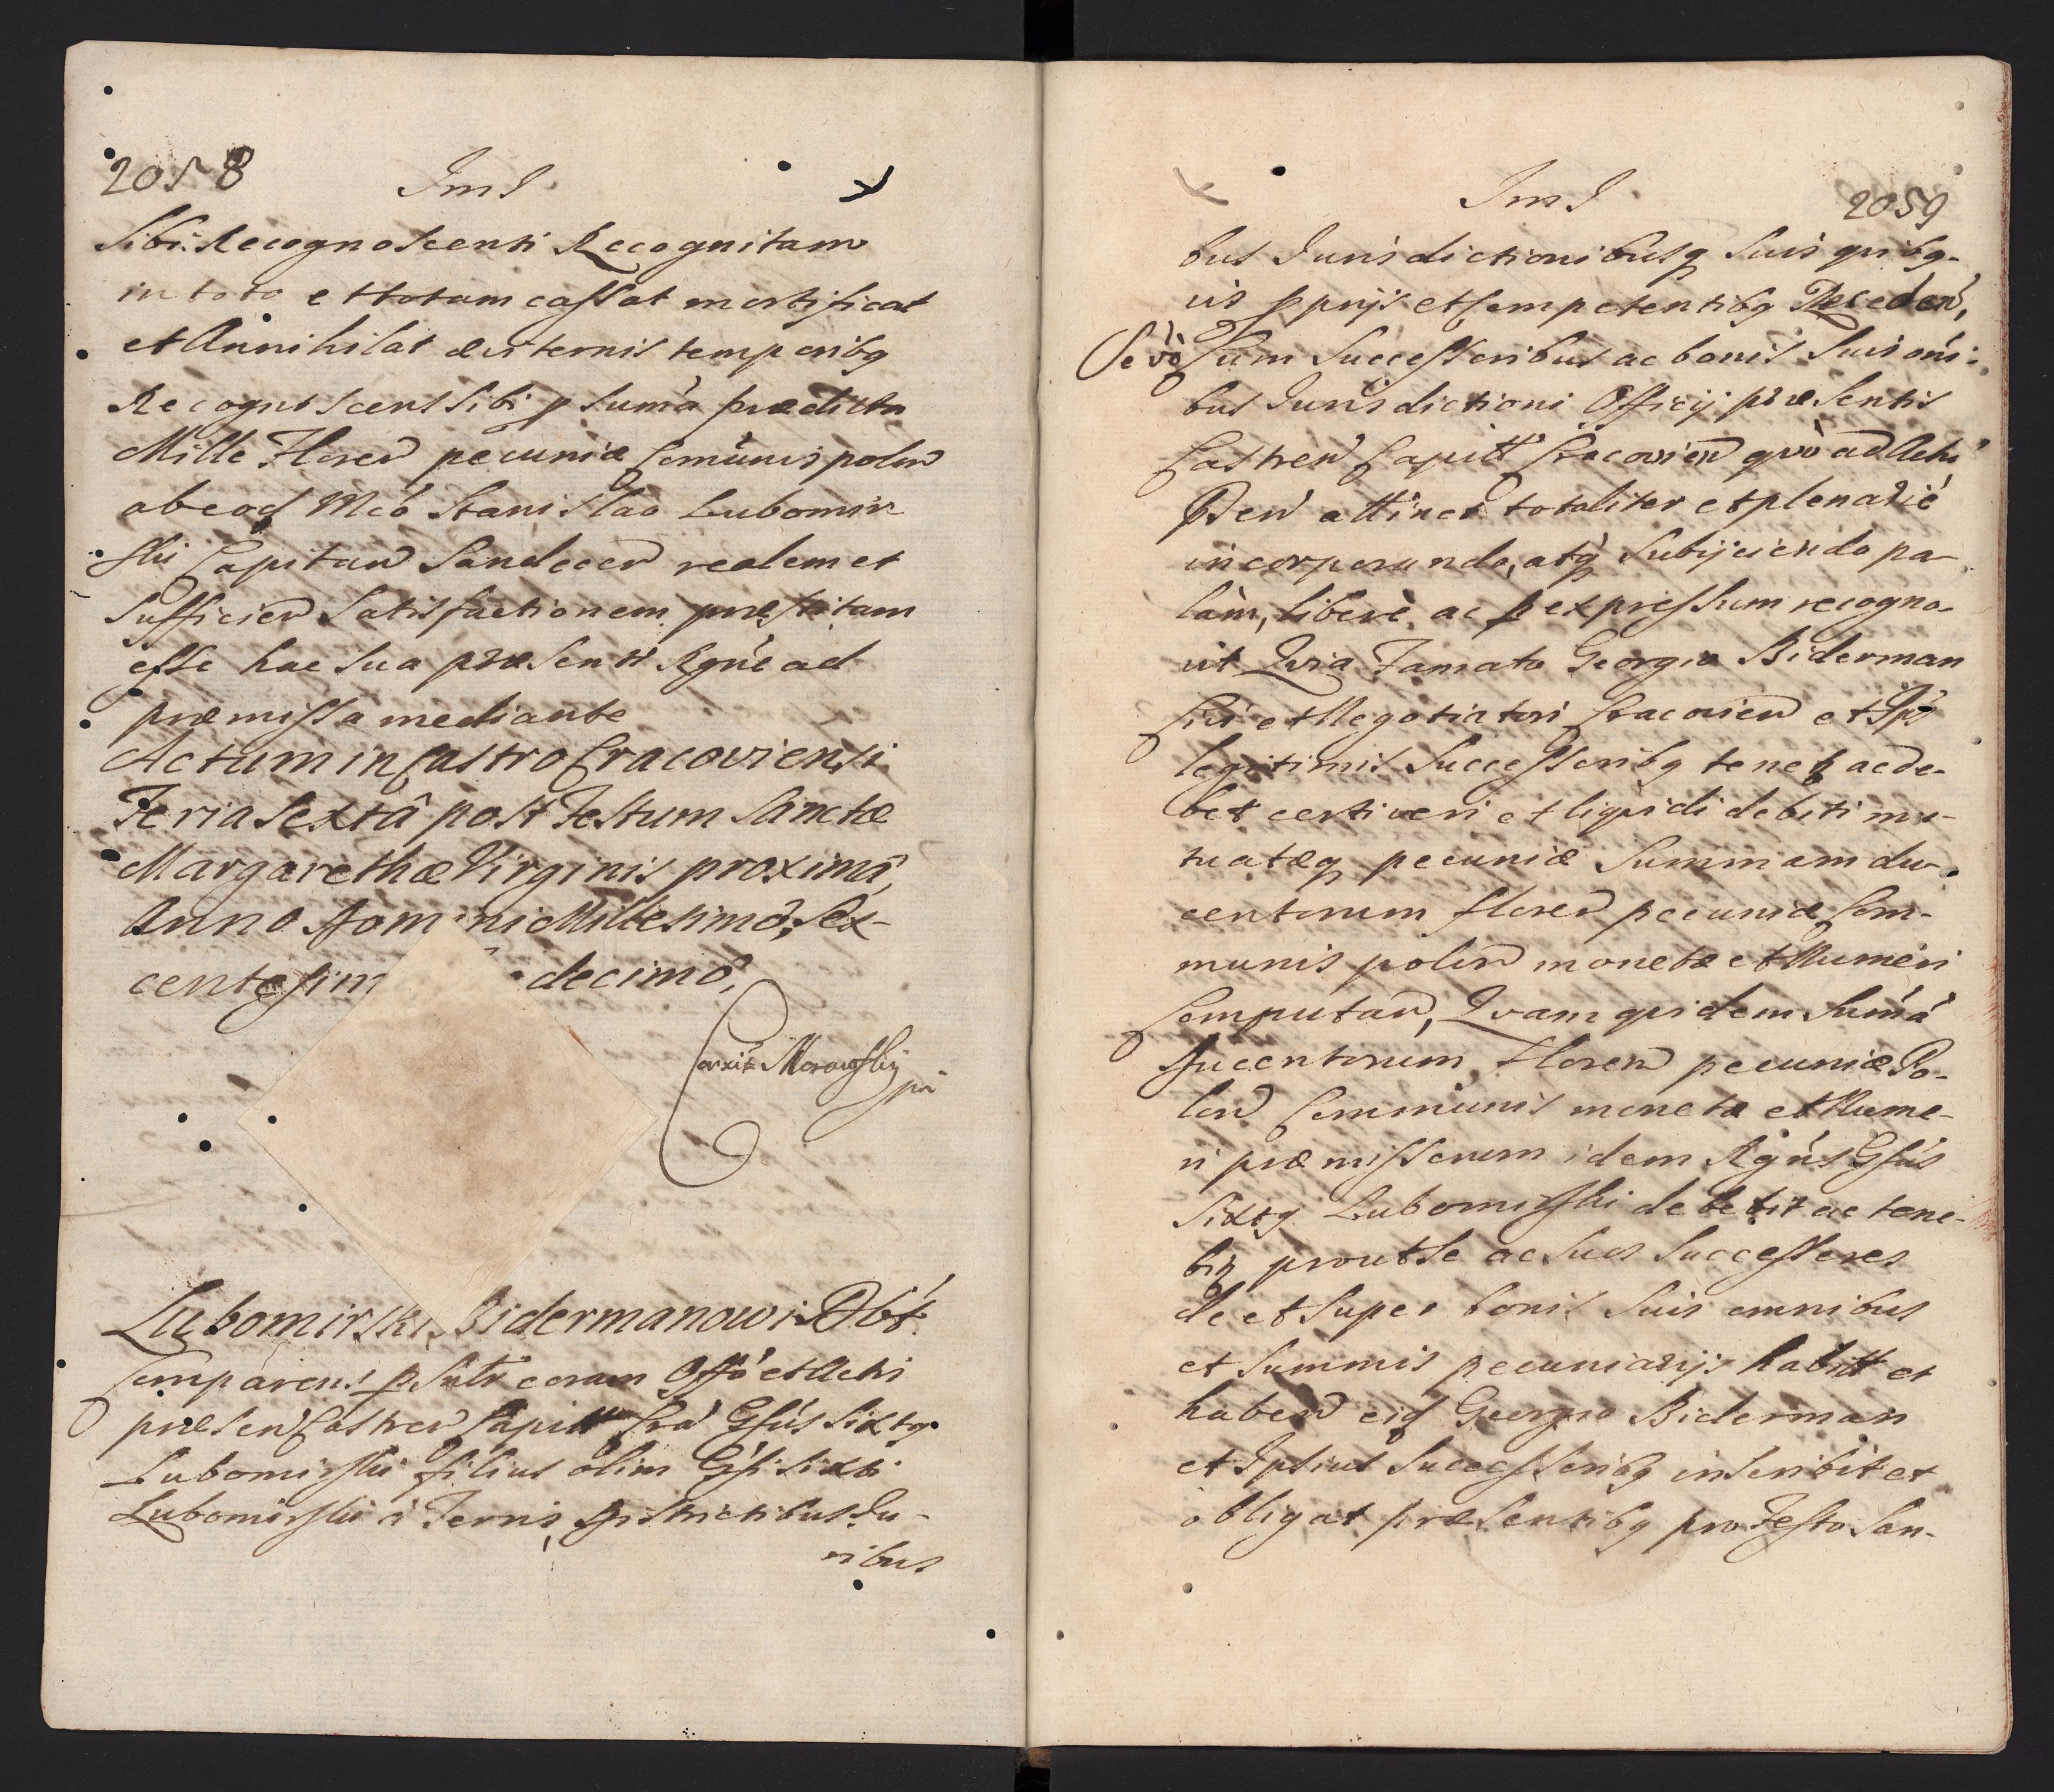 2058 Im I
Sibi Recognoscenti Recognitam
in toto et totam cassat mortificat
et Annihilat æviternis temporibq
Recognoscens sibi p suma prædicta
Mille Floreñ pecuniæ Comunis poloñ
ab eod Mco Stanislao Lubomir
ski Capitan Sandeceñ realem et
Sufficieñ Satisfactionem præstitam
esse hac sua præsenti Rgne ad
præmissa mediante
Actum in Castro Cracoviensi
Feria Sextâ post Festum Sanctæ
Margarethæ Virginis proximâ,
Anno Domini Millesimô, Sex-
centesim decimô,
Morawsky
pã
Lubomirski Bidermanowi Obt.
Comparens p Salr coram Offo et Actis
præseñ Castreñ Capitt Cra Gsus Sixtq
Lubomirski filius olim Gsi Sixti
Lubomirski à Terris, Districtibus Iu-
ribus
Im I 2059
bus Iurisdictionibusq suis quibq-
vis pprijs et Competentibq Receden,
Se vò Cum Successoribus ac bonis Suis oni-
bus Iurisdictioni Officij præsentis
Castreñ Capitt Cracovieñ quò ad Actu
Præñ attinet totaliter et plenariè
incorporando, atq Subijciendo pa-
làm, liberè ac p expressum recogno-
vit Quia Famato Georgio Biderman
Civi et Negotiatori Cracovieñ et Ips
legitimis Successoribq tenet ac de-
bet certi veri et liquidi debiti mu-
tuatæq pecuniæ Summam du-
centorum floreñ pecuniæ Com-
munis poloñ monetæ et Numeri
Computañ, Quam quidem Sumá
Ducentorum Floreñ pecuniæ Po-
loñ Communis monetæ et Nume-
ri præmissorum idem Rgns Gsus
Sixtq Lubomirski debebit ac tene-
bit prout se ac suos Successores
de et super bonis Suis omnibus
et Summis pecuniarijs habitt et
habeñ eid Georgio Biderman
et Ipsius Successoribq inscribit et
obligat præsentibq pro Festo San-